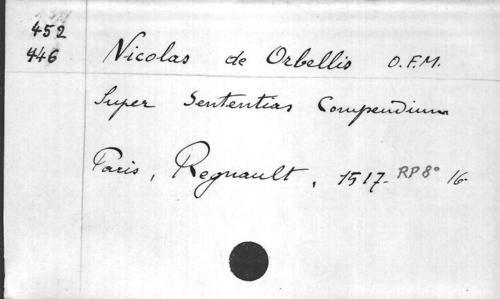 452
446
Nicolas de Orbellis O.F.M.
Super Sententias Compendium
Paris, Regnault, 1517. RP 8° 16